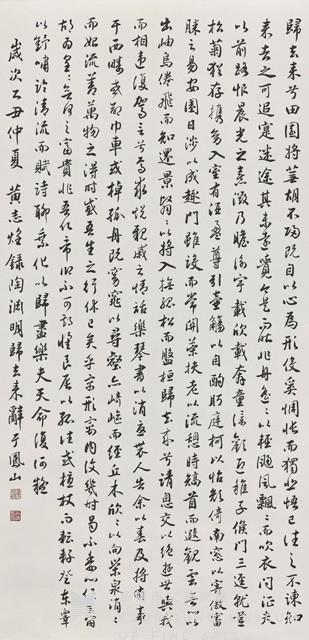 歸去來兮田園將蕪胡不歸既自以心為形役奚惆悵而獨悲悟已往之不諫知
來者之可追寔迷途其未遠覺今是而昨非舟遙遙以輕颺風飄飄而吹衣問征夫
以前路恨晨光之熹微乃瞻衡宇載欣載奔童僕歡迎稚子候門三逕就荒
松菊猶存攜幼入室有酒盈尊引壺觴以自酌眄庭柯以怡顏倚南窗以寄傲審容
膝之易安園日涉以成趣門雖設而常關策扶老以流憩時矯首而遐觀雲無心以
出岫鳥倦飛而知還景翳翳以將入撫孤松而盤桓歸去來兮請息交以絕游世與我
而相違復駕言兮焉求悅親戚之情話樂琴書以消憂農人告余以春及將有事
于西疇或命巾車或棹孤舟既窈窕以尋壑亦崎嶇而經丘木欣欣以向榮泉涓涓
而始流羨萬物之得時感吾生之行休已矣乎寓形宇內復幾時曷不委心任去留
胡為皇皇何之富貴非吾願帝鄉不可期懷良辰以孤往或植杖而耘耔登東皋
以舒嘯臨清流而賦詩聊乘化以歸盡樂夫天命復何疑
歲次乙丑仲夏 黃志煌錄陶淵明歸去來辭于鳳山